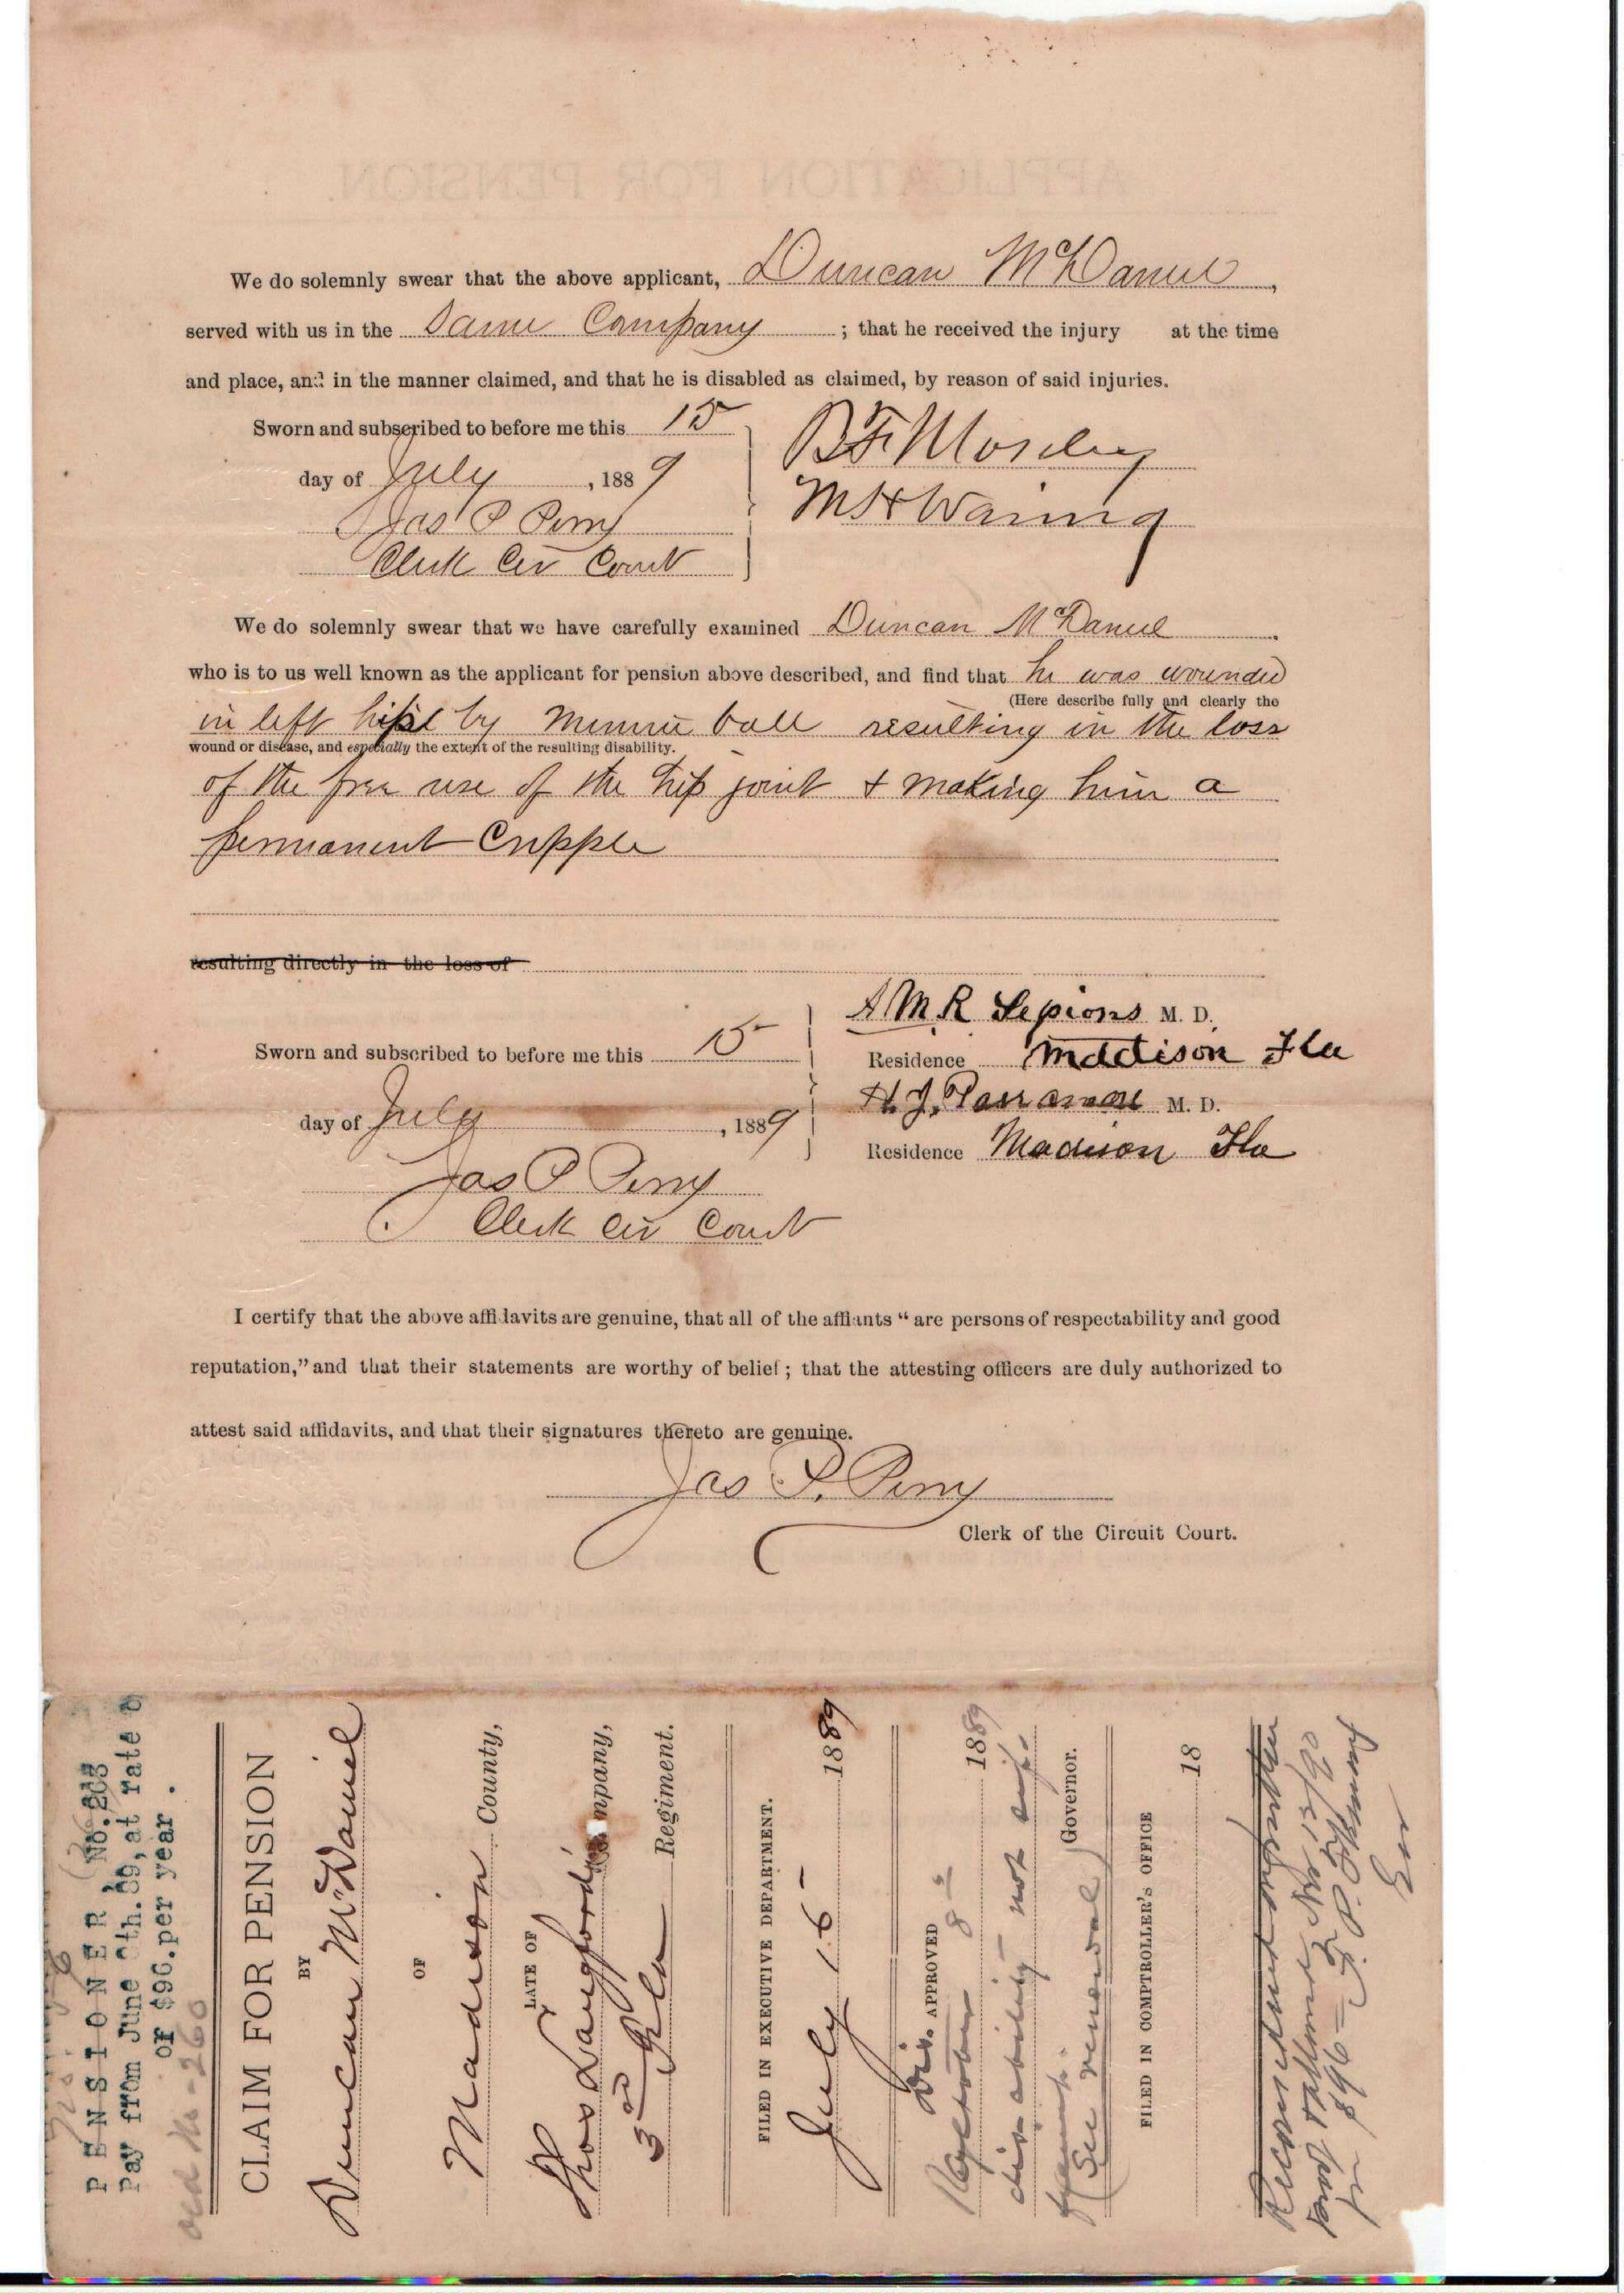 APPLICATION FOR PENSION.
We do solemnly swear that the above applicant, Duncan McDaniel,
served with us in the Same Company ; that he received the injury at the time
and place, and in the manner claimed, and that he is disabled as claimed, by reason of said injuries.
Sworn and subscribed to before me this 15
day of July, 1889
Jas P Perry
Clerk Cir Court
B F Moseley
M H Waring
We do solemnly swear that we have carefully examined Duncan McDaniel
who is to us well known as the applicant for pension above described, and find that he was wounded
(Here describe fully and clearly the
in left hip by Minnie ball resulting in the loss
wound or disease, and especially the extent of the resulting disability.
of the free use of the hip joint & making him a
permanent Cripple
resulting directly in the loss of
Sworn and subscribed to before me this 15
day of July, 1889
Jas P Perry
Clerk Cir Court
A M R M. D.
Residence Madison Fla
H. J. M. D.
Residence Madison Fla
I certify that the above affidavits are genuine, that all of the affiants "are persons of respectability and good
reputation," and that their statements are worthy of belief; that the attesting officers are duly authorized to
attest said affidavits, and that their signatures thereto are genuine.
Jas P. Perry
Clerk of the Circuit Court.
PENSIONER No.
Pay from June 8th. 89, at rate o
of $96. per year .
old No - 260
CLAIM FOR PENSION
BY
Duncan McDaniel
OF
Madison County,
LATE OF
Thos Langford's Company,
3rd Fla Regiment.
FILED IN EXECUTIVE DEPARTMENT.
July 16 - 1889
Dis. APPROVED
8 1889
disability not
Governor.
(See renewal)
FILED IN COMPTROLLER'S OFFICE
18
for $96 =
Gov